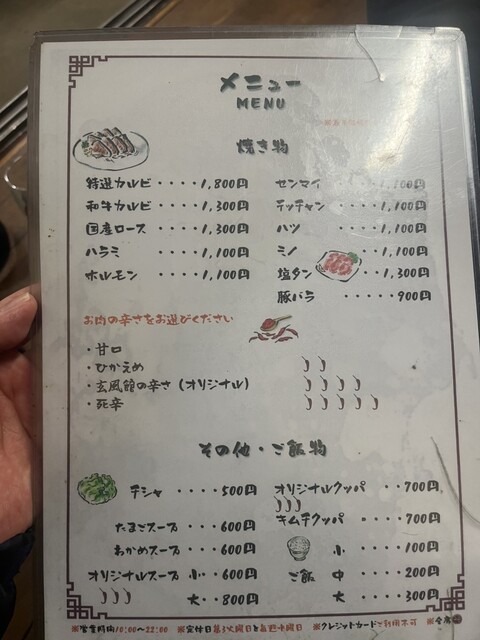 メニュー
MENU
焼き物
特選カルビ ････1,800円
和牛カルビ ････1,300円
国産ロース ････1,300円
ハラミ ････1,100円
ホルモン ････1,100円
センマイ ････1,100円
テッチャン ････1,100円
ハツ ････1,100円
ミノ ･･1,100円
塩タン ･･1,300円
豚バラ ･････900円
お肉の辛さをお選びください
・甘口
・ひかえめ
・玄風館の辛さ（オリジナル）
・死辛
その他・ご飯物
チシャ ････500円
たまごスープ ････600円
わかめスープ ････600円
オリジナルスープ 小･･600円
大･･800円
オリジナルクッパ ･･700円
キムチクッパ ････700円
ご飯 小 ････100円
中 ････200円
大 ････300円
※営業時間10:00〜22:00 ※定休日第3火曜日と毎週水曜日 ※クレジットカードご利用不可 ※全席